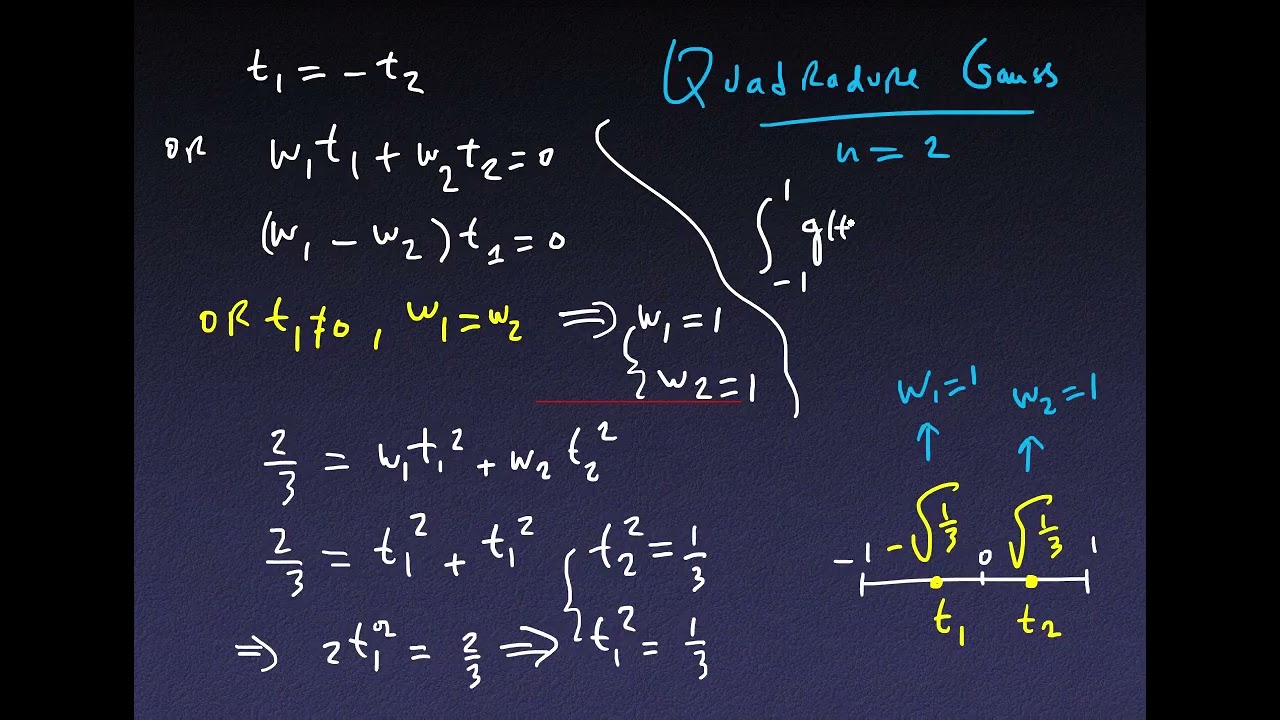 t₁ = − t₂
OR w₁t₁ + w₂t₂ = 0
(w₁ − w₂) t₁ = 0
OR t₁ ≠ 0 , w₁ = w₂ ⟹ { w₁ = 1
w₂ = 1
2/3 = w₁t₁² + w₂ t₂²
2/3 = t₁² + t₁²
{ t₂² = 1/3
⟹ 2t₁² = 2/3 ⟹ t₁² = 1/3
Quadradure Gauss
n = 2
∫₋₁¹ g(t
w₁ = 1 w₂ = 1
↑ ↑
−1 −√(1/3) 0 √(1/3) 1
t₁ t₂